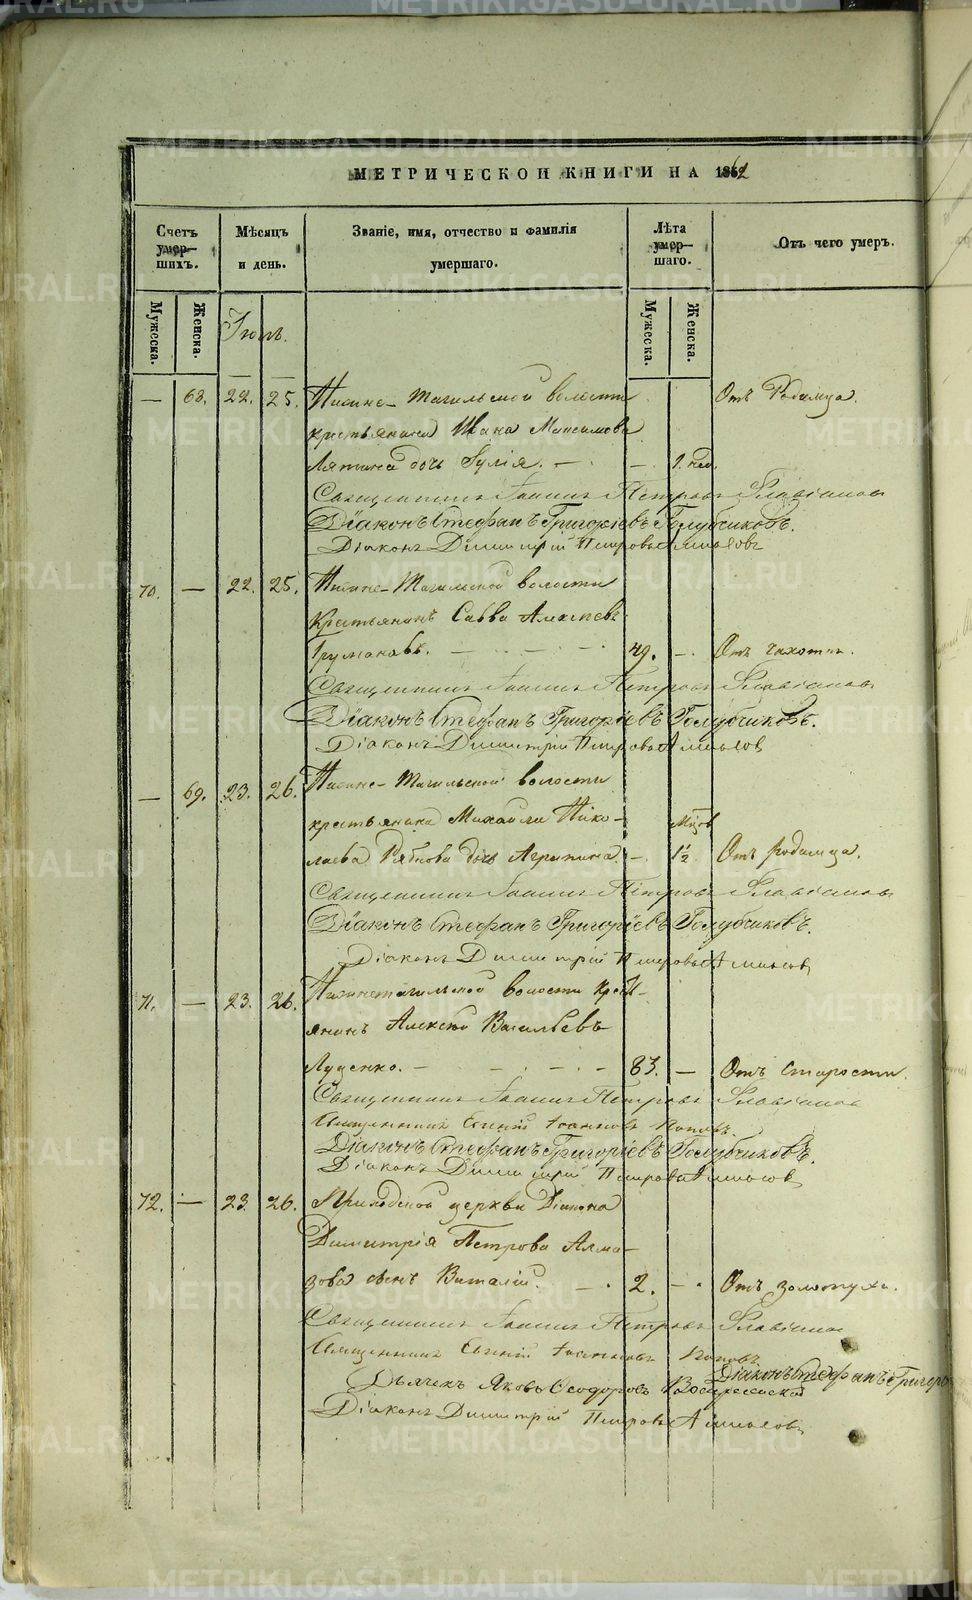 МЕТРИЧЕСКОЙ КНИГИ НА 1862
Счетъ умер-шихъ.
Мѣсяцъ и день.
Званіе, имя, отчество и фамилія умершаго.
Лѣта умер-шаго.
Отъ чего умеръ.
Мужеска.
Женска.
Мужеска.
Женска.
Іюль.
— 68. 22. 25. Нижне-Тагильской волости Отъ Родимца.
крестьянина Ивана Максимова
Ляпина дочь Іулія. — — 1. нед.
Священникъ Іоаннъ Петровъ Славнинъ
Діаконъ Стефанъ Григоріевъ Голубчиковъ.
Діаконъ Димитрій Петровъ Алмазовъ
70. — 22. 25. Нижне-Тагильской волости
Крестьянинъ Савва Алексѣевъ
49. — Отъ чахотки.
Священникъ Іоаннъ Петровъ
Діаконъ Стефанъ Григоріевъ Голубчиковъ.
Діаконъ Димитрій Петровъ Алмазовъ
— 69. 23. 26. Нижне-Тагильской волости
крестьянина Михайла Нико- Мѣсяц
лаева Рябкова дочь Агрипина. — 1½ Отъ родимца.
Священникъ Іоаннъ Петровъ
Діаконъ Стефанъ Григоріевъ Голубчиковъ.
Діаконъ Димитрій Петровъ Алмазовъ
71. — 23. 26. Нижнетагильской волости крест-
янинъ Алексѣй Васильевъ
Луценко. — 83. — Отъ старости.
Священникъ Іоаннъ Петровъ
Священникъ Евгеній Іоанновъ Поповъ
Діаконъ Стефанъ Григоріевъ Голубчиковъ.
Діаконъ Димитрій Петровъ Алмазовъ
72. — 23. 26. церкви Діакона
Димитрія Петрова Алма-
зова сынъ Виталій. — 2. — Отъ золотухи.
Священникъ Іоаннъ Петровъ
Священникъ Евгеній Іоанновъ Поповъ
Діаконъ Стефанъ Григор
Дьячекъ Яковъ Ѳеодоровъ Воскресенскій
Діаконъ Димитрій Петровъ Алмазовъ
METRIKI.GASO-URAL.RU